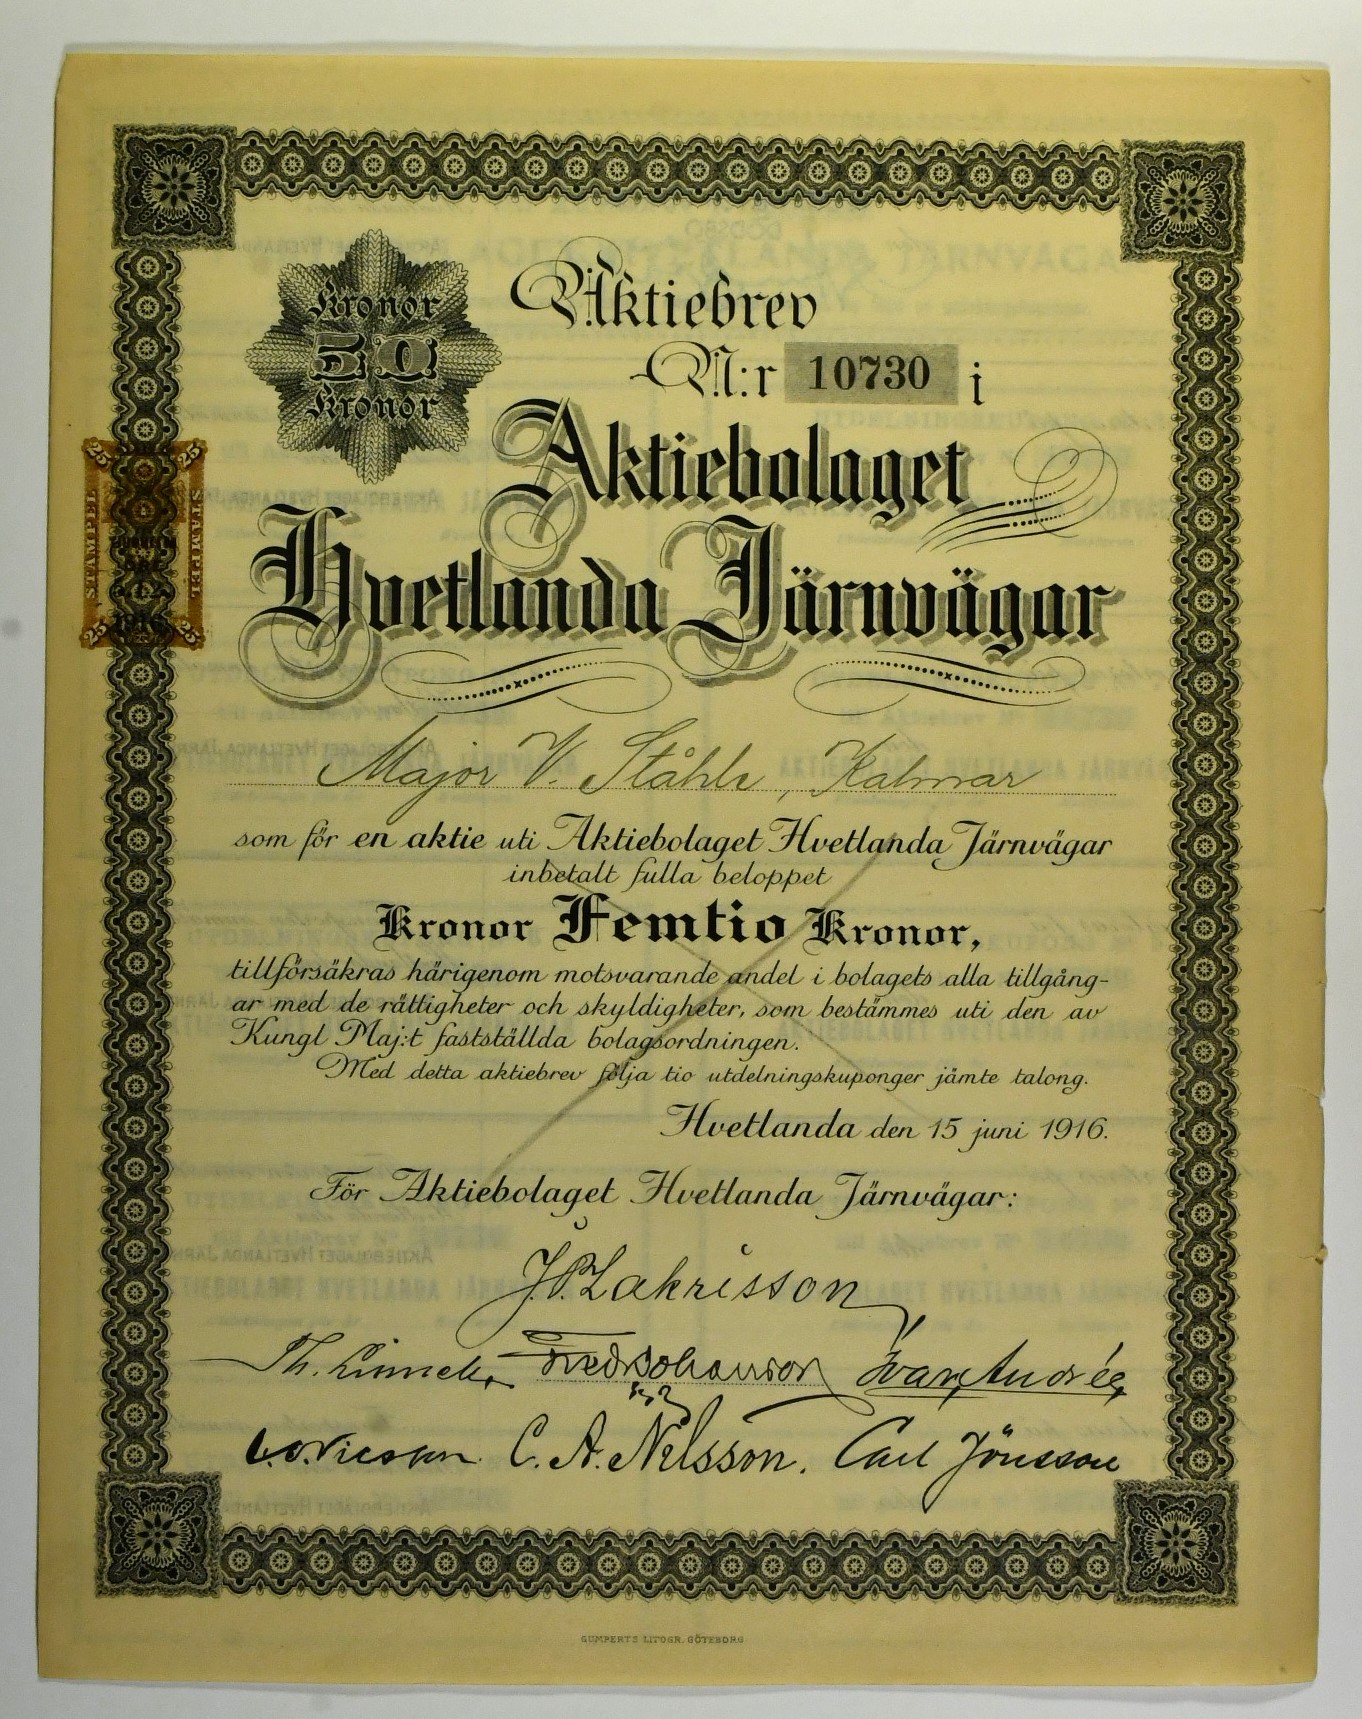 Kronor
50
Kronor
Aktiebrev
N:r 10730 i
Aktiebolaget
Hvetlanda Järnvägar
25 25
STAMPEL STAMPEL
1916
25 25
Major V. Ståhle, Kalmar
som för en aktie uti Aktiebolaget Hvetlanda Järnvägar
inbetalt fulla beloppet
Kronor Femtio Kronor,
tillförsäkras härigenom motsvarande andel i bolagets alla tillgång-
ar med de rättigheter och skyldigheter, som bestämmes uti den av
Kungl Maj:t fastställda bolagsordningen.
Med detta aktiebrev följa tio utdelningskuponger jämte talong.
Hvetlanda den 15 juni 1916.
För Aktiebolaget Hvetlanda Järnvägar:
J.P. Zakrisson
Th. Fredr Johansson Ivar Andrée
C. A. Nelsson. Carl Jönsson
GUMPERTS LITOGR. GÖTEBORG